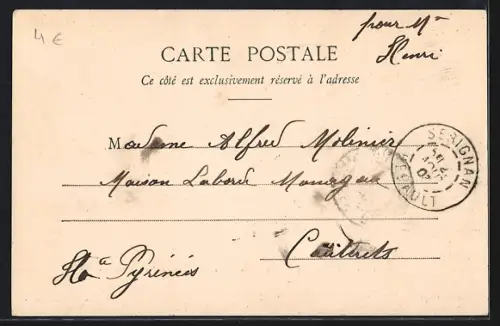 4 €
pour Mr
Henri
CARTE POSTALE
Ce côté est exclusivement réservé à l'adresse
Madame Alfred Molinier
Maison Laborde
Cauterets
Htes Pyrénées
SERIGNAN
HERAULT